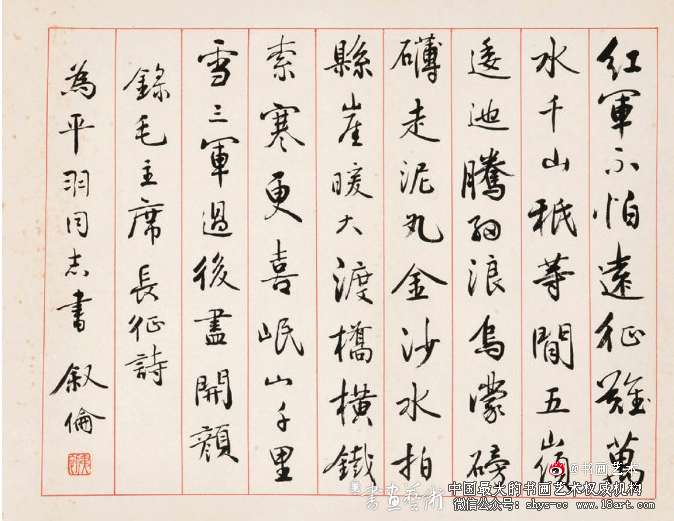 紅軍不怕遠征難萬
水千山秖等閒五嶺
逶迆騰細浪烏濛磅
礴走泥丸金沙水拍
縣崖暖大渡橋橫鐵
索寒更喜岷山千里
雪三軍過後盡開顏
錄毛主席長征詩
為平羽同志書 叙倫
@书画艺术
書畫藝術
中国最大的书画艺术权威机构
微信公众号: shys-sc www.18art.com